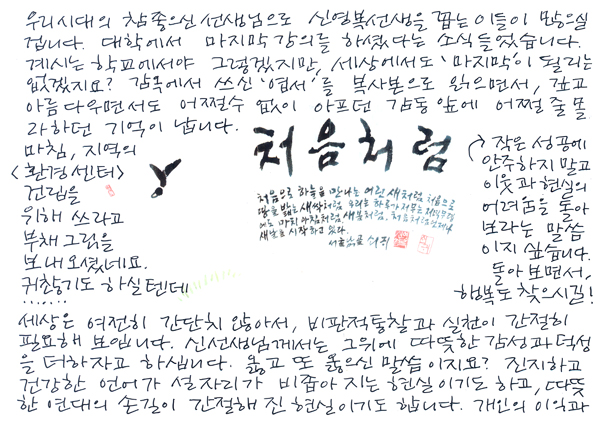 우리시대의 참 좋으신 선생님으로 신영복선생을 꼽는 이들이 많으실
겁니다. 대학에서 마지막 강의를 하셨다는 소식 들었습니다.
계시는 학교에서야 그렇겠지만, 세상에서도 '마지막'이 될리는
없겠지요? 감옥에서 쓰신 '엽서'를 복사본으로 읽으면서, 깊고
아름다우면서도 어쩔수 없이 아프던 감동 앞에 어쩔 줄 몰
라하던 기억이 납니다.
마침, 지역의
<환경센터>
건립을
위해 쓰라고
부채 그림을
보내오셨네요.
귀찮기도 하실텐데
.......
처음처럼
처음으로 하늘을 만나는 어린 새처럼 처음으로
땅을 밟는 새싹처럼 우리는 하루가 저무는 겨울저녁
에도 마치 아침처럼, 새봄처럼, 처음처럼 언제나
새날을 시작하고 있다.
쇠귀
작은 성공에
안주하지 말고
이웃과 현실의
어려움을 돌아
보라는 말씀
이지 싶습니다.
돌아보면서,
행복도 찾으시길!
세상은 여전히 간단치 않아서, 비판적통찰과 실천이 간절히
필요해 보입니다. 신선생님께서는 그위에 따뜻한 감성과 덕성
을 더하자고 하십니다. 옳고 또 옳으신 말씀이지요? 진지하고
건강한 언어가 설자리가 비좁아 지는 현실이기도 하고, 따뜻
한 연대의 손길이 간절해 진 현실이기도 합니다. 개인의 이익과